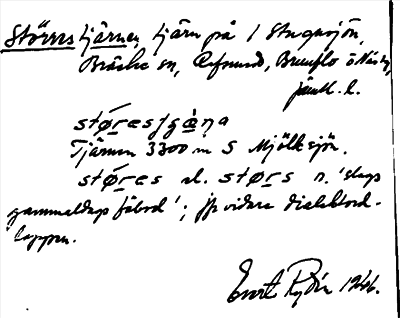 Störrestjärnen, tjärn på 1 Stugusjön,
Bräcke sn, Refsund, Brunflo
jämtl. l.
støresjgäna
Tjärnen 3300 m S Mjölksjön.
støres el. størs n. 'slags
gammeldags fäbod'; jfr vidare dialektord-
lappen.
1946.